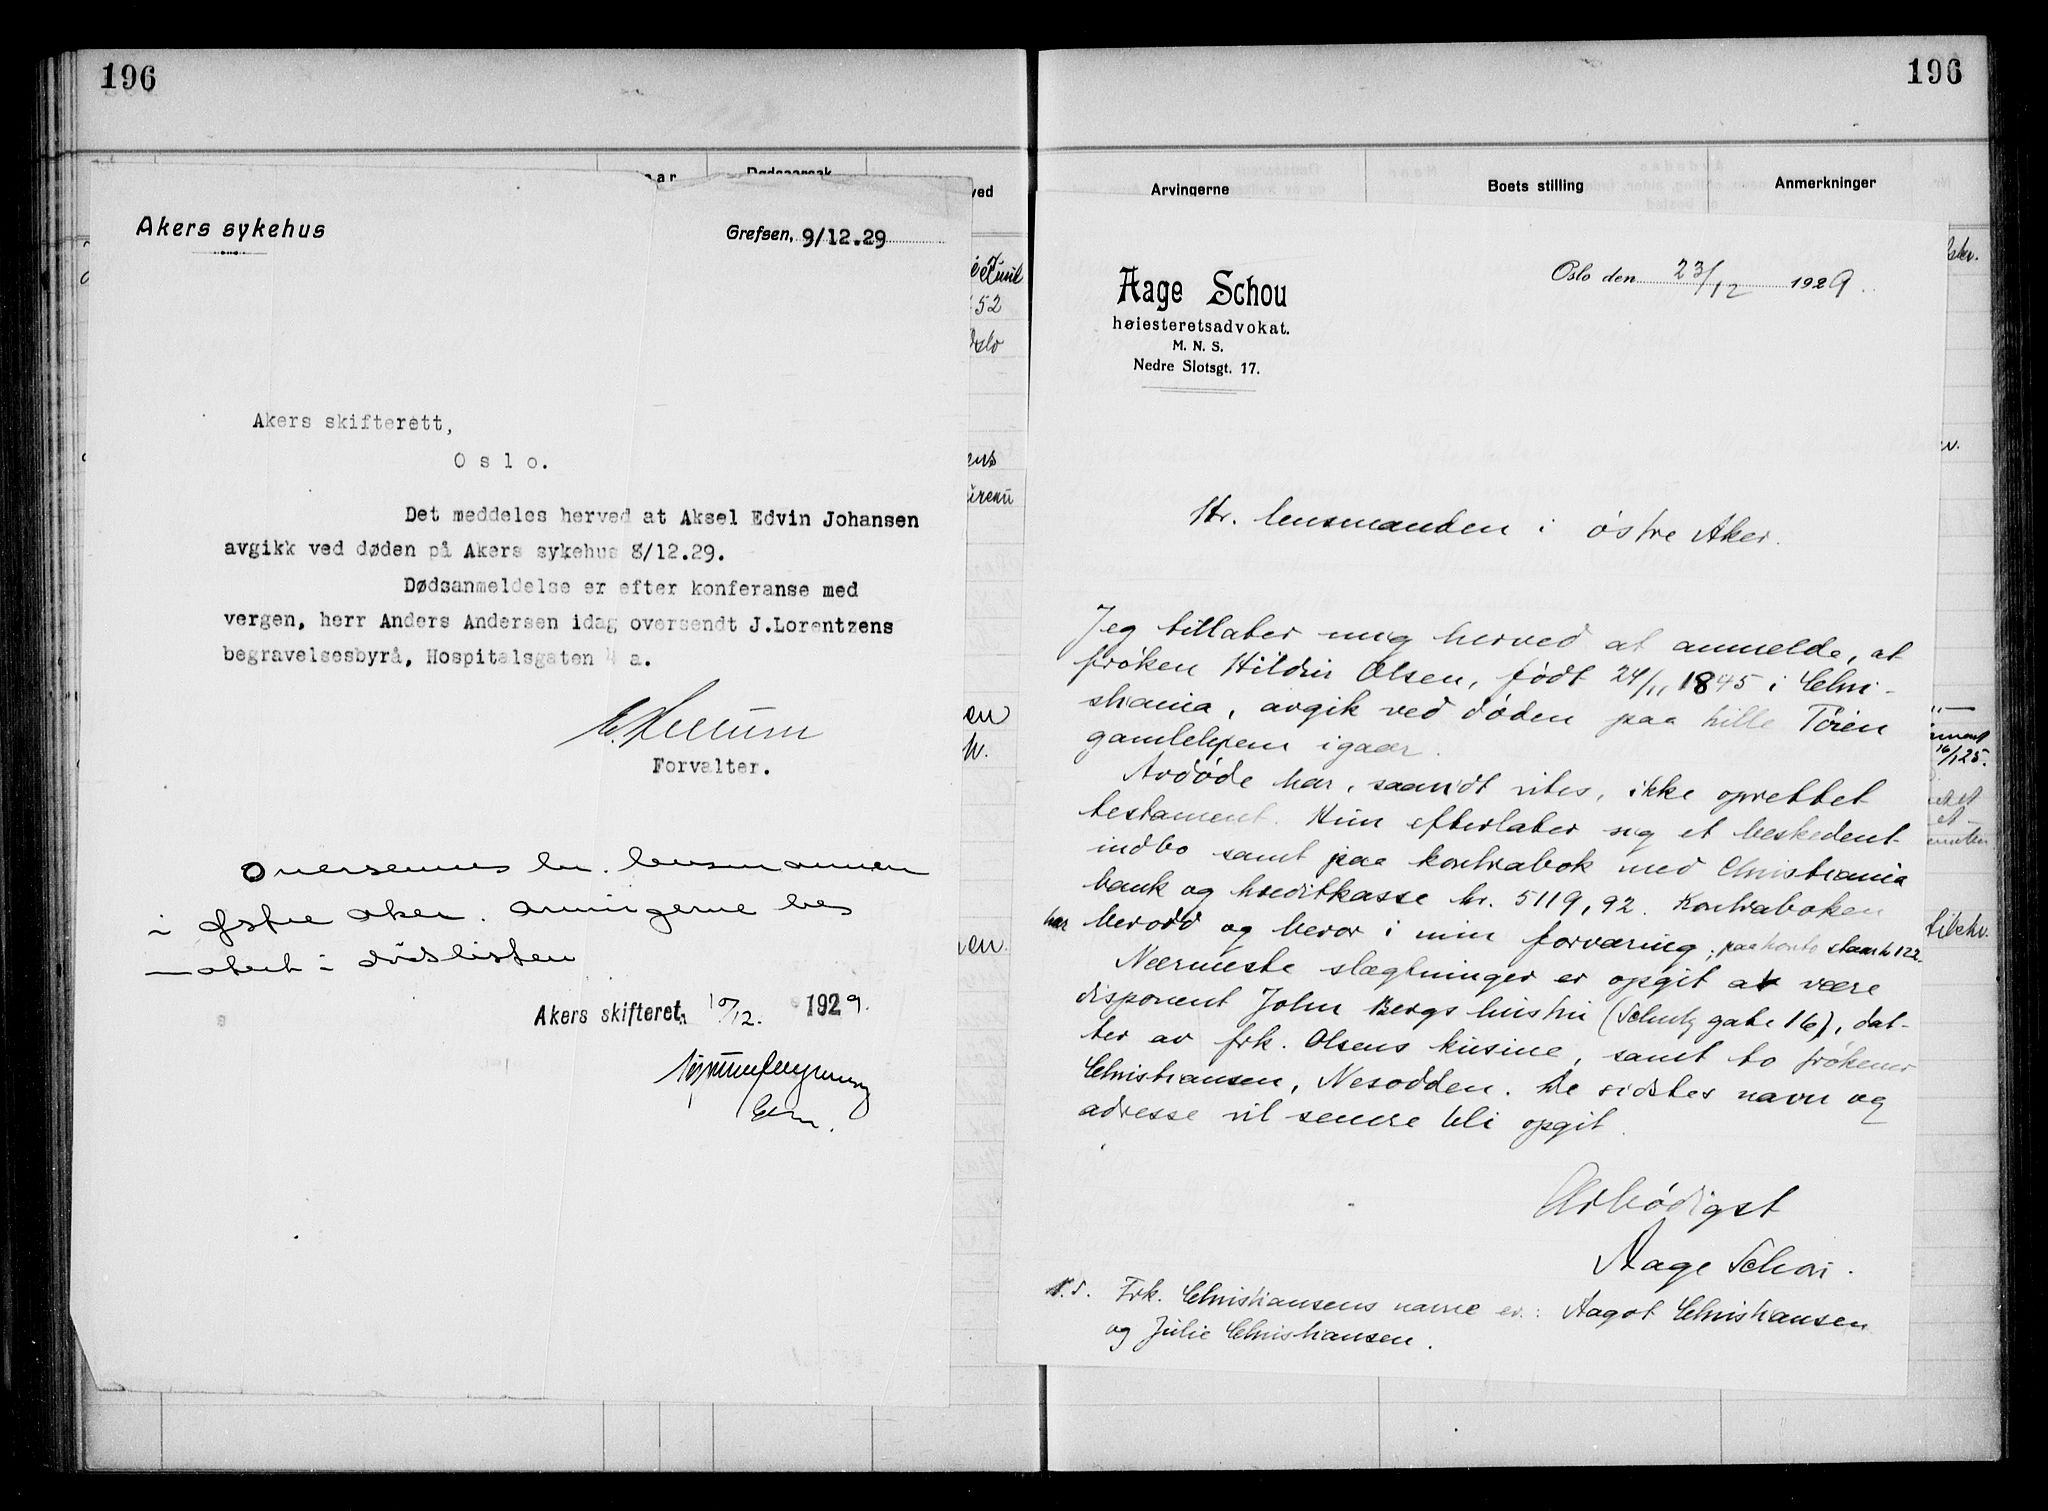 196
Dødsaarsak
Akers sykehus
Grefsen, 9/12.29
Akers skifterett,
Oslo.
Det meddeles herved at Aksel Edvin Johansen
avgikk ved døden på Akers sykehus 8/12.29.
Dødsanmeldelse er efter konferanse med
vergen, herr Anders Andersen idag oversendt J.Lorentzens
begravelsesbyrå, Hospitalsgaten 4 a.
Forvalter.
Oversendes hr. lensmannen
i østre Aker. Arvingerne bes
notert i dødslisten
Akers skifteret, 10/12. 1929.
ved
52
Oslo
196
Arvingerne
Boets stilling
Anmerkninger
Aage Schou
høiesteretsadvokat.
M. N. S.
Nedre Slotsgt. 17.
Oslo den 23/12 1929.
Hr. lensmanden i østre Aker.
Jeg tillater mig herved at anmelde, at
frøken Hilda Olsen, født 24/11 1845 i Chri-
stiania, avgik ved døden paa lille Tøien
gamlehjem igaar.
Avdøde har, saavidt vites, ikke oprettet
testament. Hun efterlater sig et beskedent
indbo samt paa kontrabok med Christiania
bank og kreditkasse kr. 5119,92. Kontraboken
har berodd og beror i min forvaring; paa konto
Nærmeste slægtninger er opgit at være
disponent John Bergs hustru (Schultz gate 16), dat-
ter av frk. Olsens kusine, samt to frøkener
Christiansen, Nesodden. De sidstes navn og
adresse vil senere bli opgit.
Ærbødigst
Aage Schou.
P.S. Frk. Christiansens navne er: Aagot Christiansen
og Julie Christiansen.